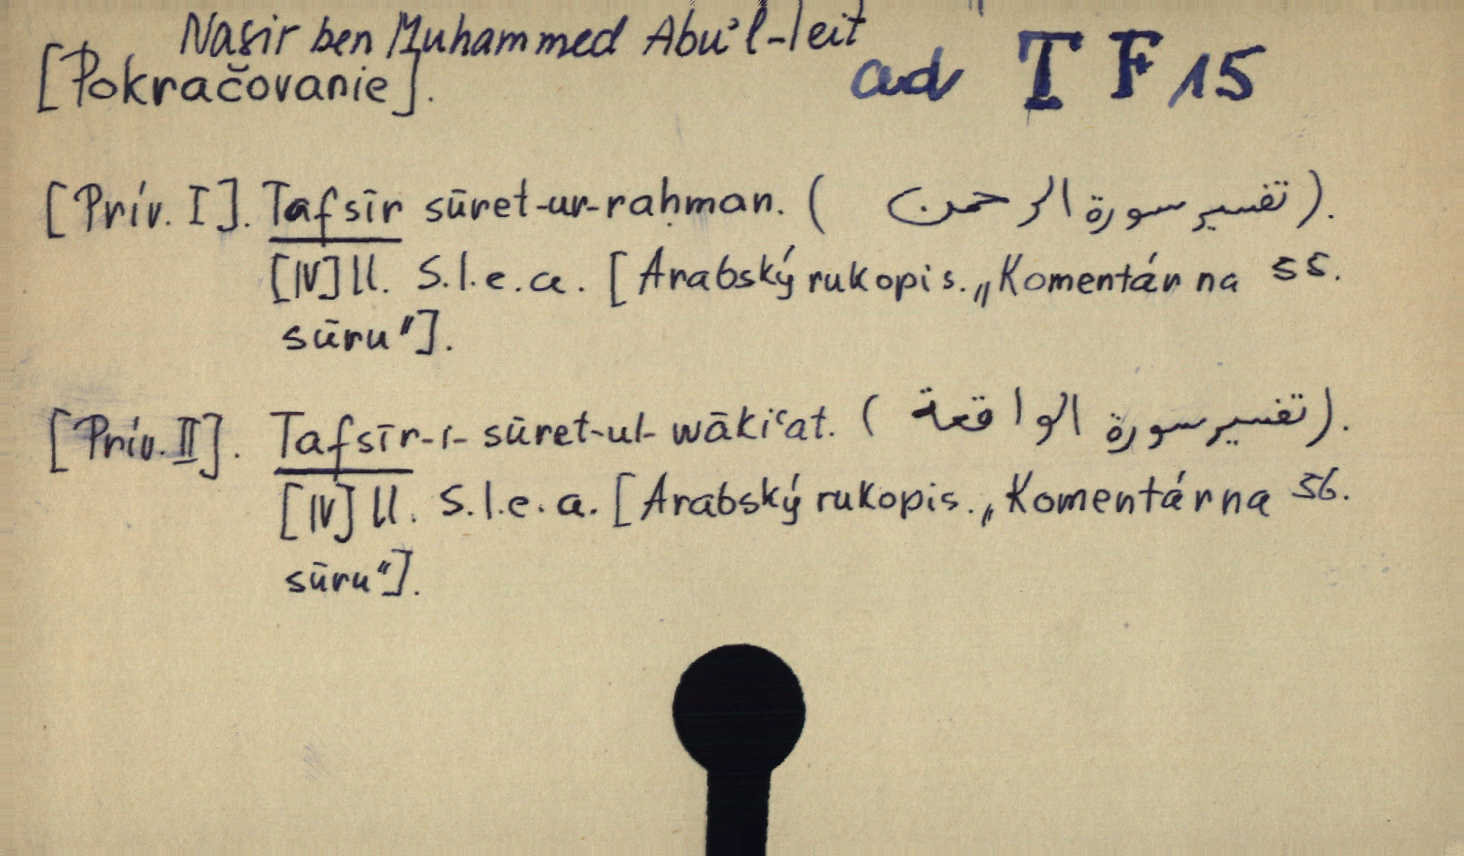 Nasir ben Muhammed Abu'l-leit
[Pokračovanie].
ad TF 15
[Prív. I]. Tafsīr sūret-ur-raḥman. (تفسير سورة الرحمن).
[IV] ll. S.l.e.a. [Arabský rukopis. „Komentár na 55.
sūru"].
[Prív. II]. Tafsīr-i- sūret-ul- wāki‘at. (تفسير سورة الواقعة).
[IV] ll. S.l.e.a. [Arabský rukopis. „Komentár na 56.
sūru"].